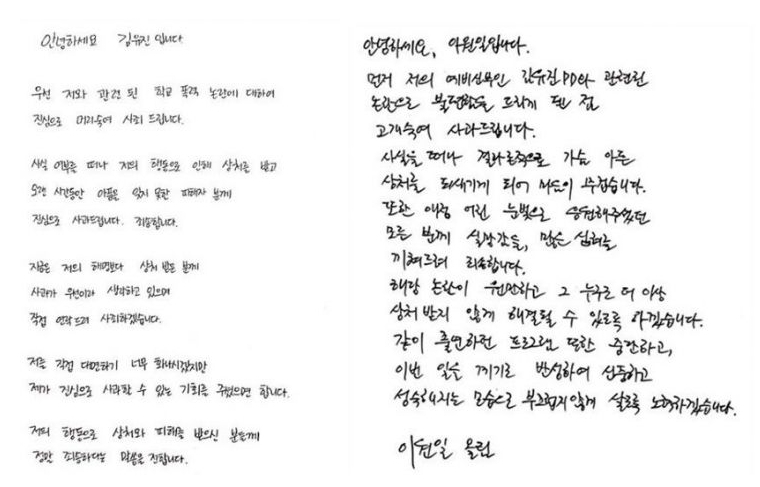 안녕하세요 김유진 입니다.
우선 저와 관련 된 학교 폭력 논란에 대하여
진심으로 머리숙여 사죄 드립니다.
사실 여부를 떠나 저의 행동으로 인해 상처를 받고
오랜 시간동안 아픔을 잊지 못한 피해자 분께
진심으로 사과드립니다. 죄송합니다.
지금은 저의 해명보다 상처 받은 분께
사과가 우선이라 생각하고 있으며
직접 연락드려 사죄하겠습니다.
저를 직접 대면하기 너무 화나시겠지만
제가 진심으로 사과할 수 있는 기회를 주셨으면 합니다.
저의 행동으로 상처와 피해를 받으신 분들께
정말 죄송하다는 말씀을 전합니다.
안녕하세요, 이원일입니다.
먼저 저의 예비신부인 김유진PD와 관련된
논란으로 불편함을 드리게 된 점
고개숙여 사과드립니다.
사실을 떠나 결과론적으로 가슴 아픈
상처를 되새기게 되어 마음이 무겁습니다.
또한 애정 어린 눈빛으로 응원해주었던
모든 분께 실망감을, 많은 심려를
끼쳐드려 죄송합니다.
해당 논란이 원만하고 그 누구도 더 이상
상처 받지 않게 해결될 수 있도록 하겠습니다.
같이 출연하던 프로그램 또한 중단하고,
이번 일을 계기로 반성하여 신중하고
성숙해지는 모습으로 부끄럽지않게 살도록 노력하겠습니다.
이원일 올림